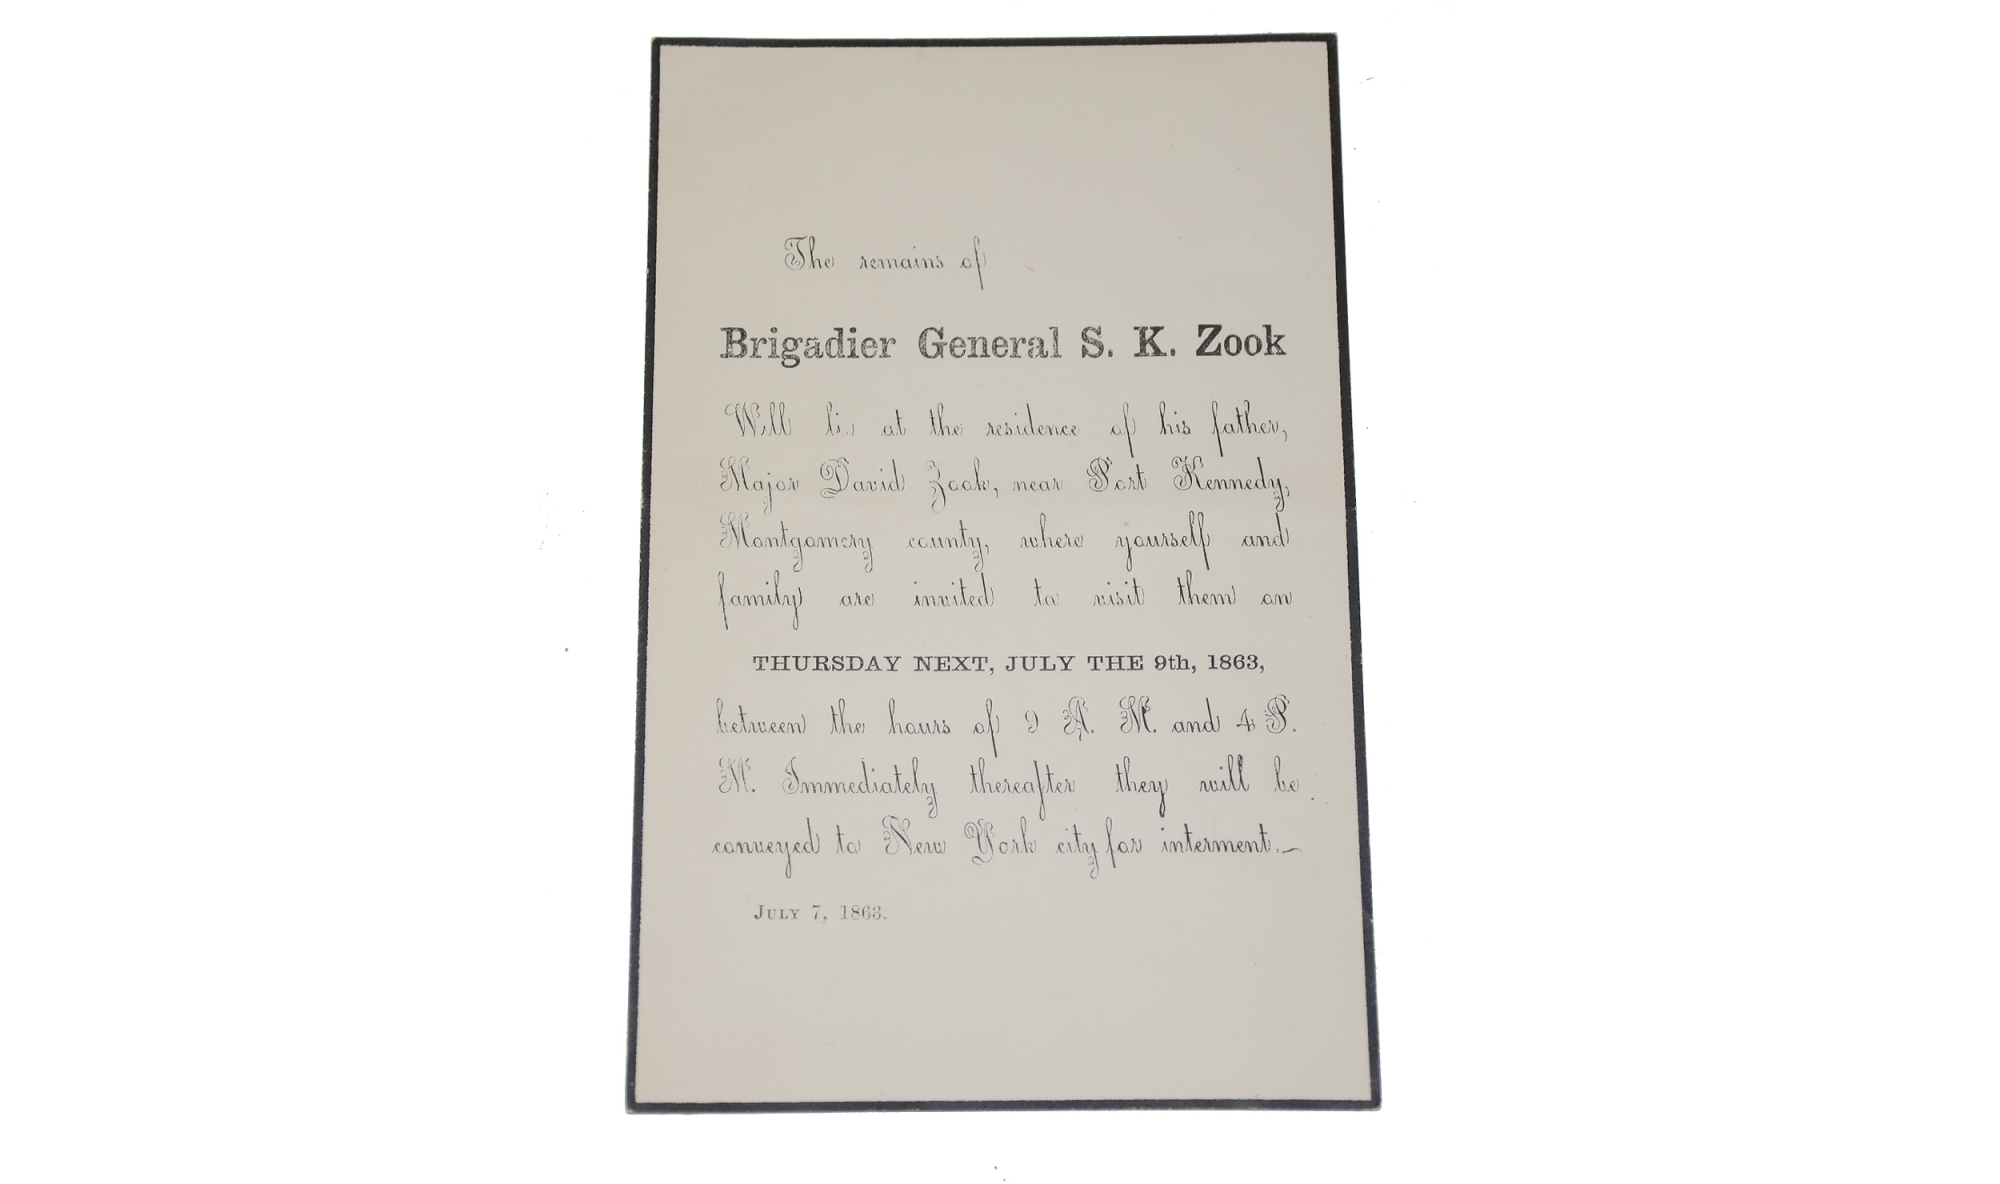 The remains of
Brigadier General S. K. Zook
Will lie at the residence of his father,
Major David Zook, near Port Kennedy,
Montgomery county, where yourself and
family are invited to visit them on
THURSDAY NEXT, JULY THE 9th, 1863,
between the hours of 9 A. M. and 4 P.
M. Immediately thereafter they will be
conveyed to New York city for interment.—
JULY 7, 1863.